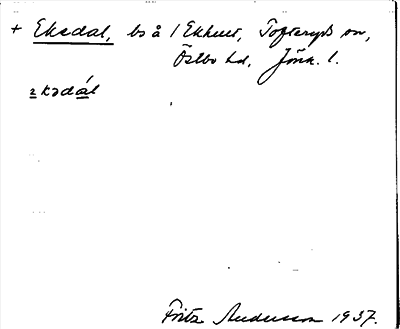 + Eksdal, bs å 1 Ekhult, Tofteryds sn,
Östbo hd, Jönk. l.
eksdál
Fritz Andersson 1937.